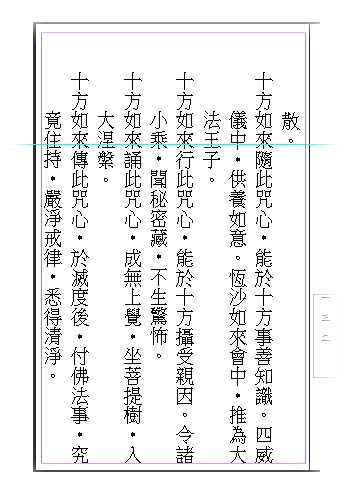 散。
十方如來隨此咒心‧能於十方事善知識。四威
儀中‧供養如意。恆沙如來會中‧推為大
法王子。
十方如來行此咒心‧能於十方攝受親因。令諸
小乘‧聞秘密藏‧不生驚怖。
十方如來誦此咒心‧成無上覺‧坐菩提樹‧入
大涅槃。
十方如來傳此咒心‧於滅度後‧付佛法事‧究
竟住持‧嚴淨戒律‧悉得清淨。